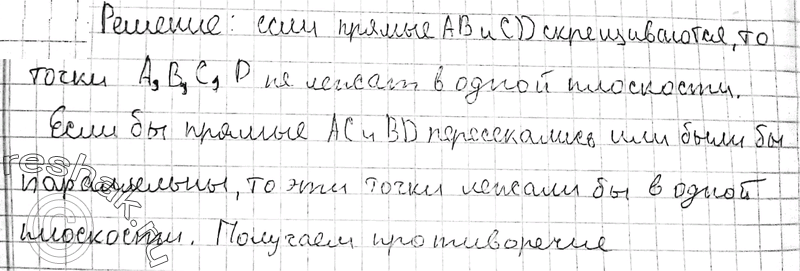 Решение: если прямые AB и CD скрещиваются, то
точки A, B, C, D не лежат в одной плоскости.
Если бы прямые AC и BD пересекались или были бы
параллельны, то эти точки лежали бы в одной
плоскости. Получаем противоречие
reshak.ru